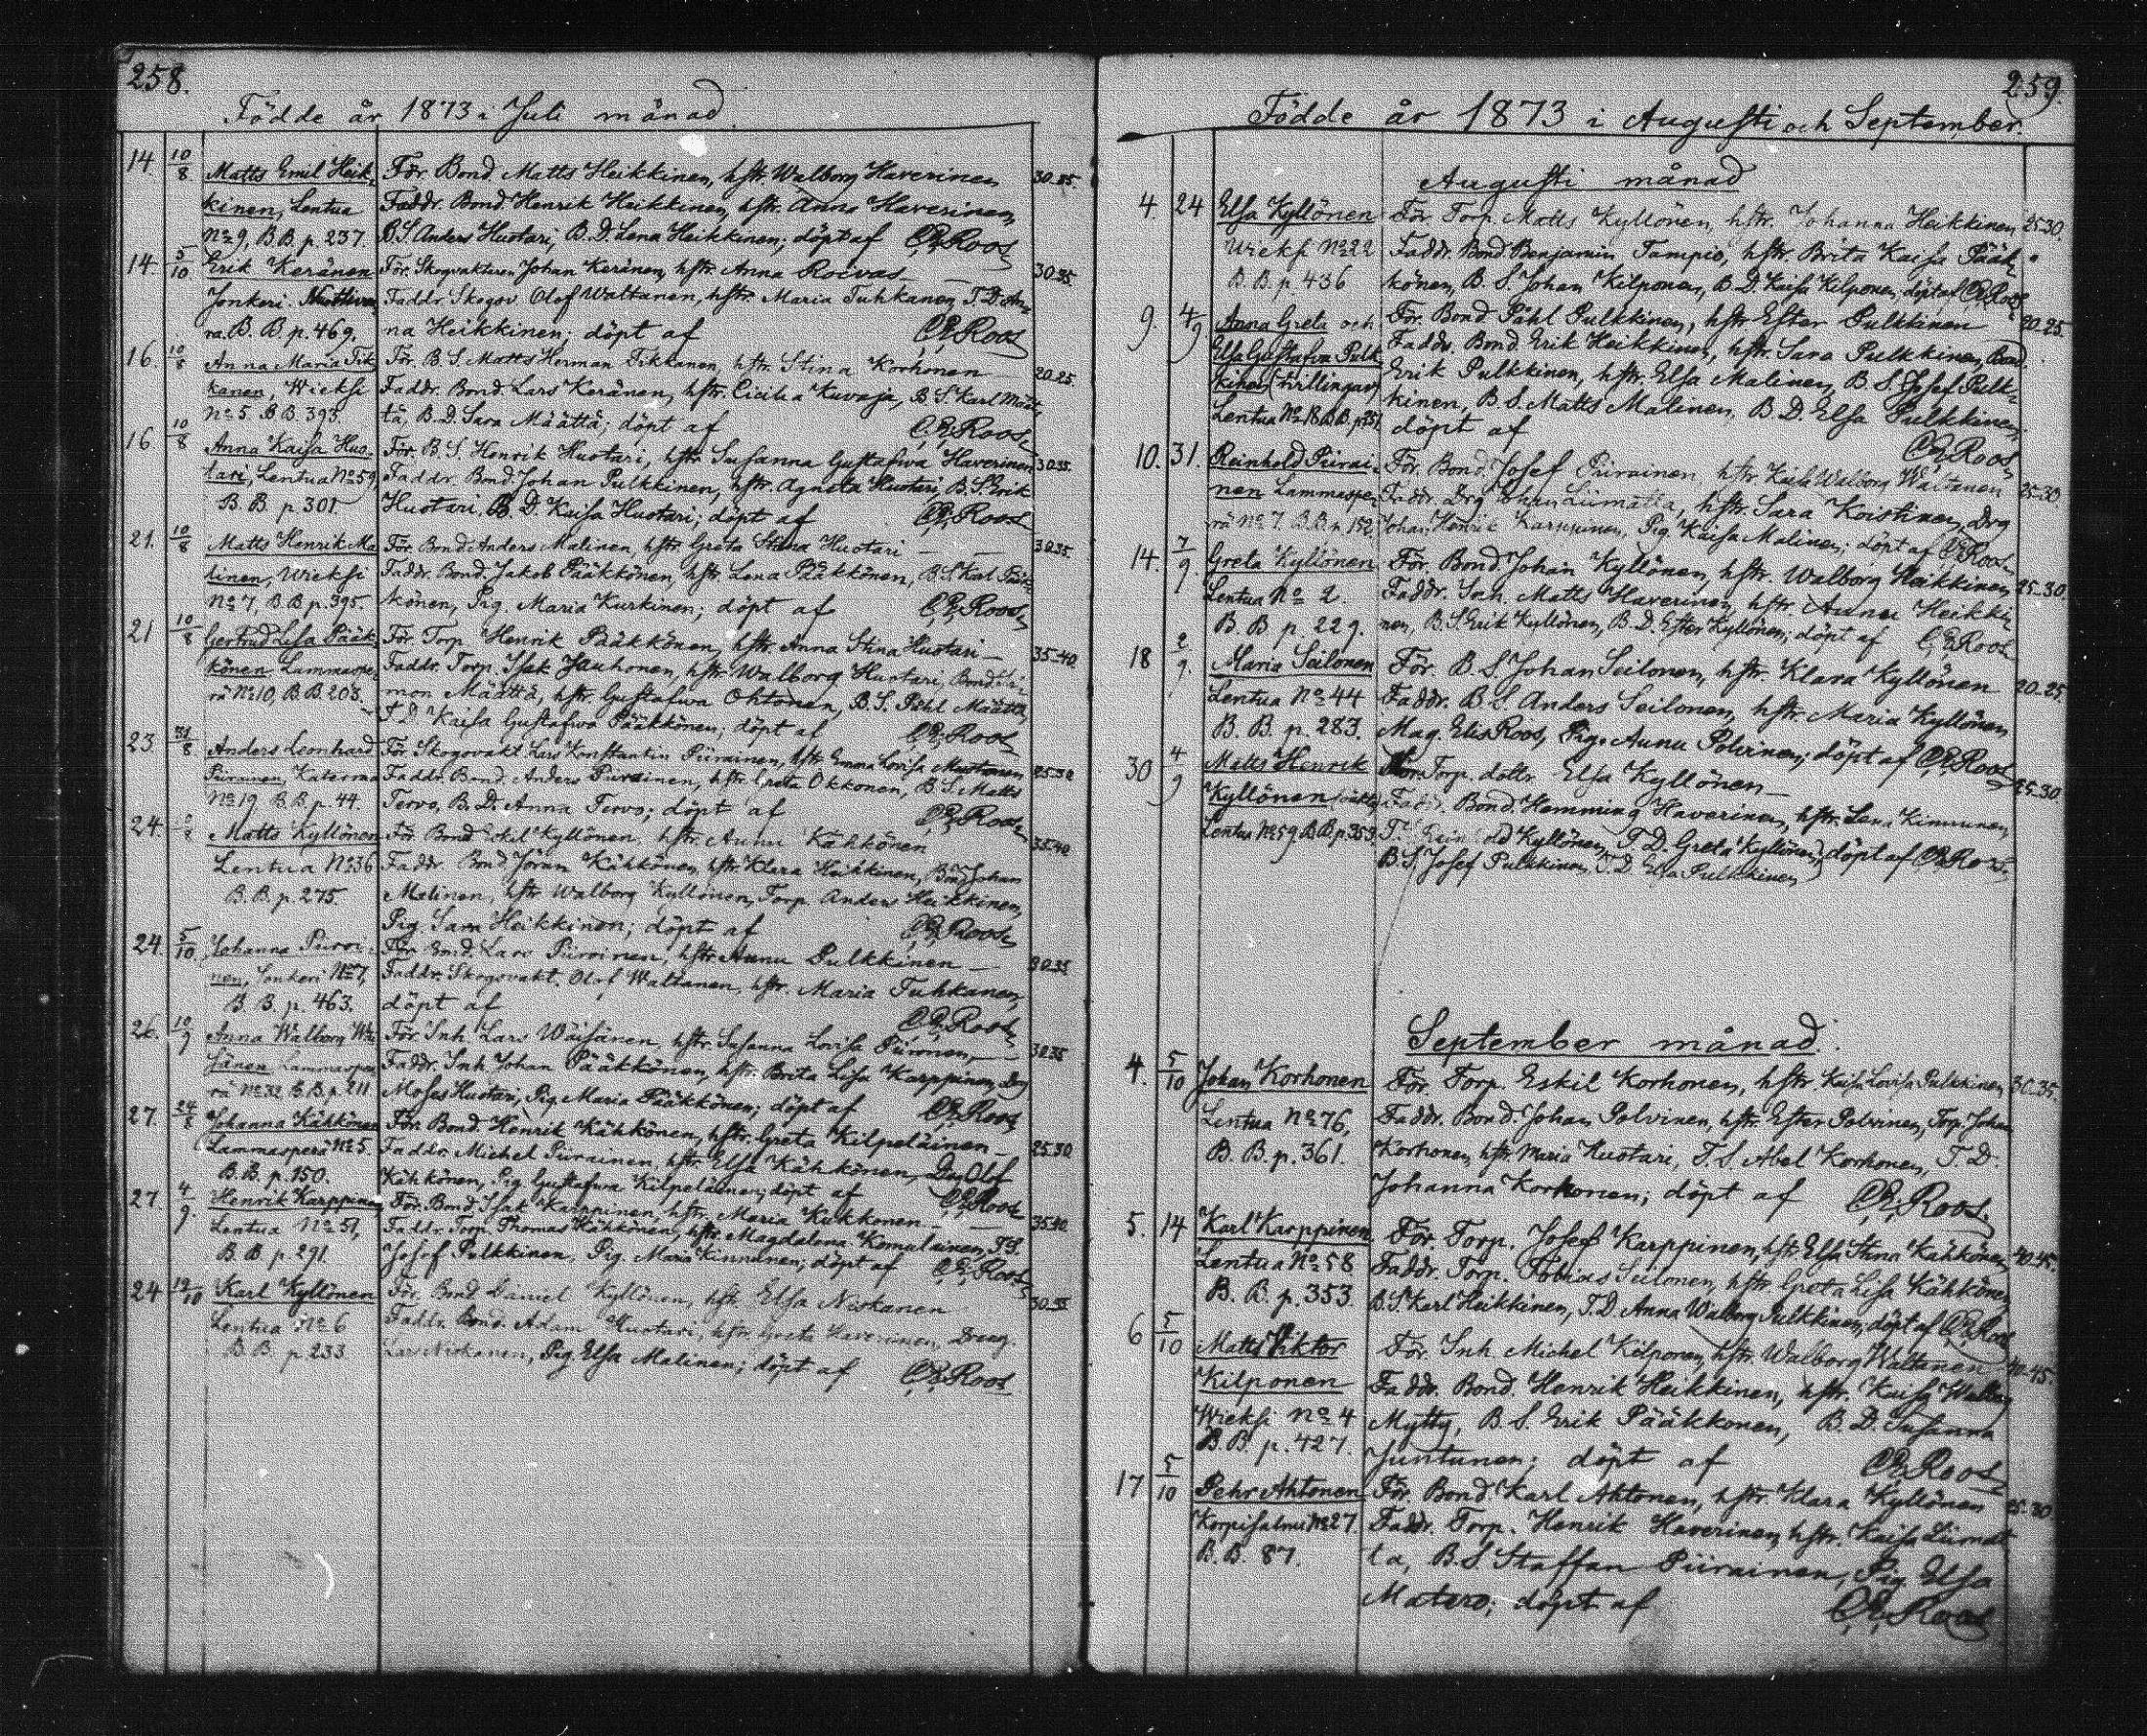 258.
Födde år 1873 i Juli månad.
14. 10/8 Matts Emil Heik- För. Bond Matts Heikkinen, hstr. Walborg Haverinen 30-35.
kinen, Lentua Faddr. Bond Henrik Heikkinen, hstr. Anna Haverinen,
No 9, B.B. p. 237. B.S. Anders Huotari, B.D. Lena Heikkinen; döpt af C.E. Roos
14. 5/10 Erik Keränen För. Skogvaktaren Johan Keränen, hstr. Anna Roivas 30-35.
Jonkeri Faddr. Skogsv. Olof Waltanen, hstr. Maria Tuhkanen, T.D. An-
ra B.B. p. 469. na Heikkinen; döpt af C.E. Roos
16. 10/8 Anna Maria Tik- För. B.S. Matts Herman Tikkanen, hstr. Stina Korhonen 20-25.
kanen, Wieksi Faddr. Bond. Lars Keränen, hstr. Cicilia Kuvaja, B.S. Karl Määt-
No 5 B.B. 393. tä, B.D. Sara Määttä; döpt af C.E. Roos
16. 10/8 Anna Kaisa Huo- För. B.S. Henrik Huotari, hstr. Susanna Gustafwa Haverinen 30-35.
tari, Lentua No 59, Faddr. Bond. Johan Pulkkinen, hstr. Agneta Huotari, B.S. Erik
B.B. p. 301. Huotari, B.D. Kaisa Huotari; döpt af C.E. Roos
21. 10/8 Matts Henrik Ma- För. Bond. Anders Malinen, hstr. Greta Stina Huotari 30-35.
linen, Wieksi Faddr. Bond. Jakob Pääkkönen, hstr. Lena Pääkkönen, B.S. Karl Pääk-
No 7, B.B. p. 395. könen, Pig. Maria Kurkinen; döpt af C.E. Roos
21 10/8 Gertrud Lisa Pääk- För. Torp. Henrik Pääkkönen, hstr. Anna Stina Huotari 35-40.
könen Lammaspe- Faddr. Torp. Isak Jauhonen, hstr. Walborg Huotari, Bond. Si-
rä No 10, B.B. 203. mon Määttä, hstr. Gustafwa Ohtonen, B.S. Påhl Määttä,
T.D. Kaisa Gustafwa Pääkkönen; döpt af C.E. Roos
23. 31/8 Anders Leonhard För. Skogsvakt. Lars Konstantin Piirainen, hstr. Emma Lovisa Mustonen 25-30.
Piirainen, Katerma Faddr. Bond. Anders Piirainen, hstr. Greta Okkonen, B.S. Matts
No 19 B.B. p. 44. Tervo, B.D. Anna Tervo; döpt af C.E. Roos
24. Matts Kyllönen För. Bond Kyllönen, hstr. Anna Kähkönen 35-40.
Lentua No 36 Faddr. Bond Jöran Kähkönen, hstr. Klara Heikkinen, Bond Johan
B.B. p. 275. Malinen, hstr. Walborg Kyllönen, Torp. Anders Heikkinen,
Pig. Sara Heikkinen; döpt af C.E. Roos
24. 5/10 Johanna Piirai- För. Bond. Lars Piirainen, hstr. Anna Pulkkinen 30-35.
nen, Jonkeri No 7, Faddr. Skogsvakt. Olof Waltanen, hstr. Maria Tuhkanen,
B.B. p. 463. döpt af C.E. Roos
26. 10/9 Anna Walborg Wäi- För. Inh. Lars Wäisänen, hstr. Susanna Lovisa Piironen, 30-35.
sänen Lammaspe- Faddr. Inh. Johan Pääkkönen, hstr. Brita Lisa Karppinen, Drg
rä No 32 B.B. p. 211 Moses Huotari, Pig. Maria Pääkkönen; döpt af C.E. Roos
27. 24/8 Johanna Kähkönen För. Bond. Henrik Kähkönen, hstr. Greta Kilpeläinen 25-30.
Lammasperä No 5. Faddr. Michel Piirainen, hstr. Elsa Kähkönen, Drg Olof
B.B. p. 150. Kähkönen, Pig. Gustafwa Kilpeläinen; döpt af C.E. Roos
27. 4/9. Henrik Karppinen För. Bond. Isak Karppinen, hstr. Maria Kukkonen 35-40.
Lentua No 51, Faddr. Torp. Thomas Kähkönen, hstr. Magdalena Komulainen, T.S.
B.B. p. 291. Josef Pulkkinen, Pig. Maria Kinnunen; döpt af C.E. Roos
24 19/10 Karl Kyllönen För. Bond. Daniel Kyllönen, hstr. Elsa Niskanen 30-35.
Lentua No 6 Faddr. Bond. Adam Huotari, hstr. Greta Haverinen, Dreng.
B.B. p. 233 Lars Niskanen, Pig. Elsa Malinen; döpt af C.E. Roos
259.
Födde år 1873 i Augusti och September.
Augusti månad
4. 24 Elsa Kyllönen För. Torp. Matts Kyllönen, hstr. Johanna Heikkinen 25-30.
Wieksi No 22 Faddr. Bond. Benjamin Tampio, hstr. Brita Kaisa Pääk-
B.B. p. 436 könen, B.S. Johan Kilponen, B.D. Kaisa Kilponen; döpt af C.E. Roos
9. 4/9 Anna Greta och För. Bond. Påhl Pulkkinen, hstr. Ester Pulkkinen 20-25
Elsa Gustafwa Pulk- Faddr. Bond. Erik Heikkinen, hstr. Sara Pulkkinen, Bond.
kinen (tvillingar) Erik Pulkkinen, hstr. Elsa Malinen, B.S. Josef Pulk-
Lentua No 18 B.B. p. 251. kinen, B.S. Matts Malinen, B.D. Elsa Pulkkinen;
döpt af C.E. Roos
10. 31. Reinhold Piirai- För. Bond. Josef Piirainen, hstr. Kaisa Walborg Waltanen 25-30.
nen Lammaspe- Faddr. Drg Johan Liimatta, hstr. Sara Koistinen, Drg
rä No 7. B.B. p. 152. Johan Henrik Karppinen, Pig. Kaisa Malinen; döpt af C.E. Roos
14. 7/9 Greta Kyllönen För. Bond. Johan Kyllönen, hstr. Walborg Heikkinen 25-30.
Lentua No 2. Faddr. Inh. Matts Haverinen, hstr. Anna Heikki-
B.B. p. 229. nen, B.S. Erik Kyllönen, B.D. Ester Kyllönen; döpt af C.E. Roos
18 2/9. Maria Seilonen För. B.S. Johan Seilonen, hstr. Klara Kyllönen 20-25.
Lentua No 44 Faddr. B.S. Anders Seilonen, hstr. Maria Kyllönen
B.B. p. 283. Mag. Elis Roos, Pig. Anna Polvinen; döpt af C.E. Roos
30 4/9 Matts Henrik Torp. dottr. Elsa Kyllönen 25-30.
Kyllönen (oäkta) Faddr. Bond. Hemming Haverinen, hstr. Lena Kinnunen,
Lentua No 59. B.B. p. 353. Kyllönen, T.D. Greta Kyllönen; döpt af C.E. Roos
B.S. Josef Pulkkinen, T.D. Elsa Pulkkinen
September månad.
4. 5/10 Johan Korhonen För. Torp. Eskil Korhonen, hstr. Kaisa Lovisa Pulkkinen 30-35.
Lentua No 76, Faddr. Bond. Johan Polvinen, hstr. Ester Polvinen, Torp. Johan
B.B. p. 361. Korhonen, hstr. Maria Huotari, T.S. Abel Korhonen, T.D.
Johanna Korhonen; döpt af C.E. Roos.
5. 14 Karl Karppinen För. Torp. Josef Karppinen, hstr. Elsa Stina Kähkönen 40-45.
Lentua No 58 Faddr. Torp. Tobias Seilonen, hstr. Greta Lisa Kähkönen,
B.B. p. 353. B.S. Karl Heikkinen, T.D. Anna Walborg Pulkkinen, döpt af C.E. Roos
6 5/10 Matts Viktor För. Inh. Michel Kilponen, hstr. Walborg Waltanen 40-45.
Kilponen Faddr. Bond. Henrik Heikkinen, hstr. Kaisa Walborg
Wieksi No 4 Mytty, B.S. Erik Pääkkonen, B.D. Susanna
B.B. p. 427. Juntunen; döpt af C.E. Roos
17 5/10 Pehr Ahtonen För. Bond Karl Ahtonen, hstr. Klara Kyllönen 25-30
Korpisalmi No 27 Faddr. Torp. Henrik Haverinen, hstr. Kaisa Liimat-
B.B. 87. ta, B.S. Staffan Piirainen, Pig. Elsa
Matero; döpt af C.E. Roos